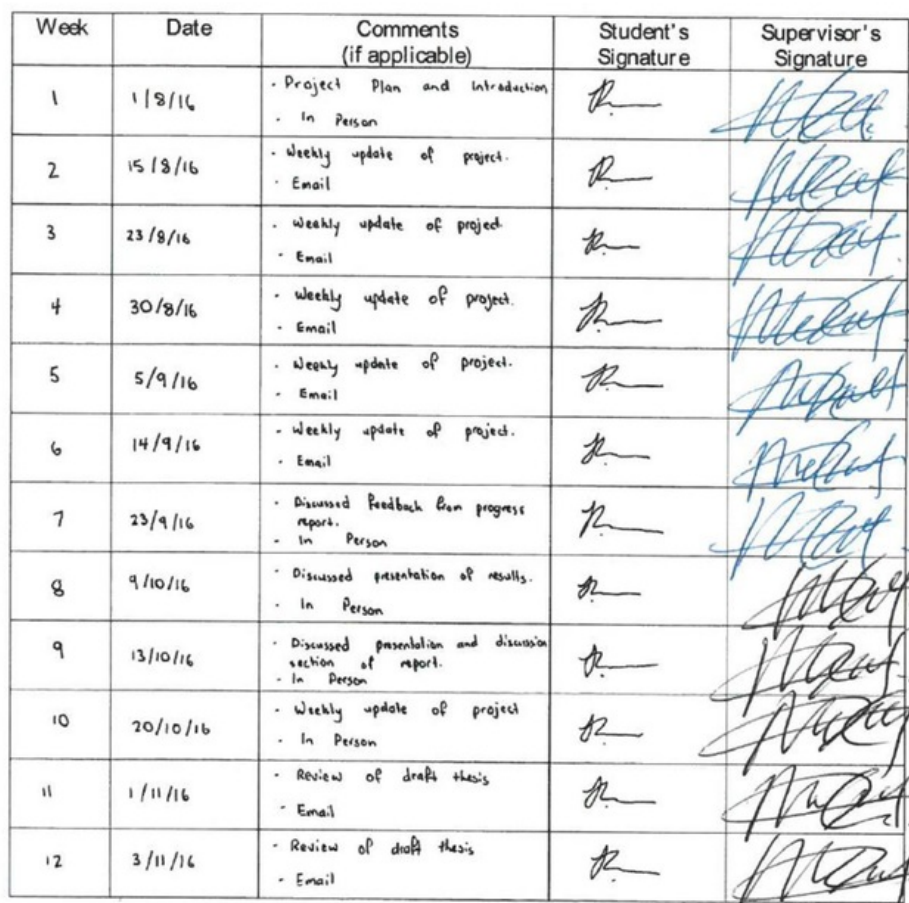 Week Date Comments Student's Supervisor's
(if applicable) Signature Signature
1 1/8/16 - Project Plan and Introduction
- In Person
2 15/8/16 - Weekly update of project.
- Email
3 23/8/16 - Weekly update of project
- Email
4 30/8/16 - Weekly update of project.
- Email
5 5/9/16 - Weekly update of project.
- Email
6 14/9/16 - Weekly update of project.
- Email
7 23/9/16 - Discussed feedback from progress
report.
- In Person
8 9/10/16 - Discussed presentation of results.
- In Person
9 13/10/16 - Discussed presentation and discussion
section of report.
- In Person
10 20/10/16 - Weekly update of project
- In Person
11 1/11/16 - Review of draft thesis
- Email
12 3/11/16 - Review of draft thesis
- Email